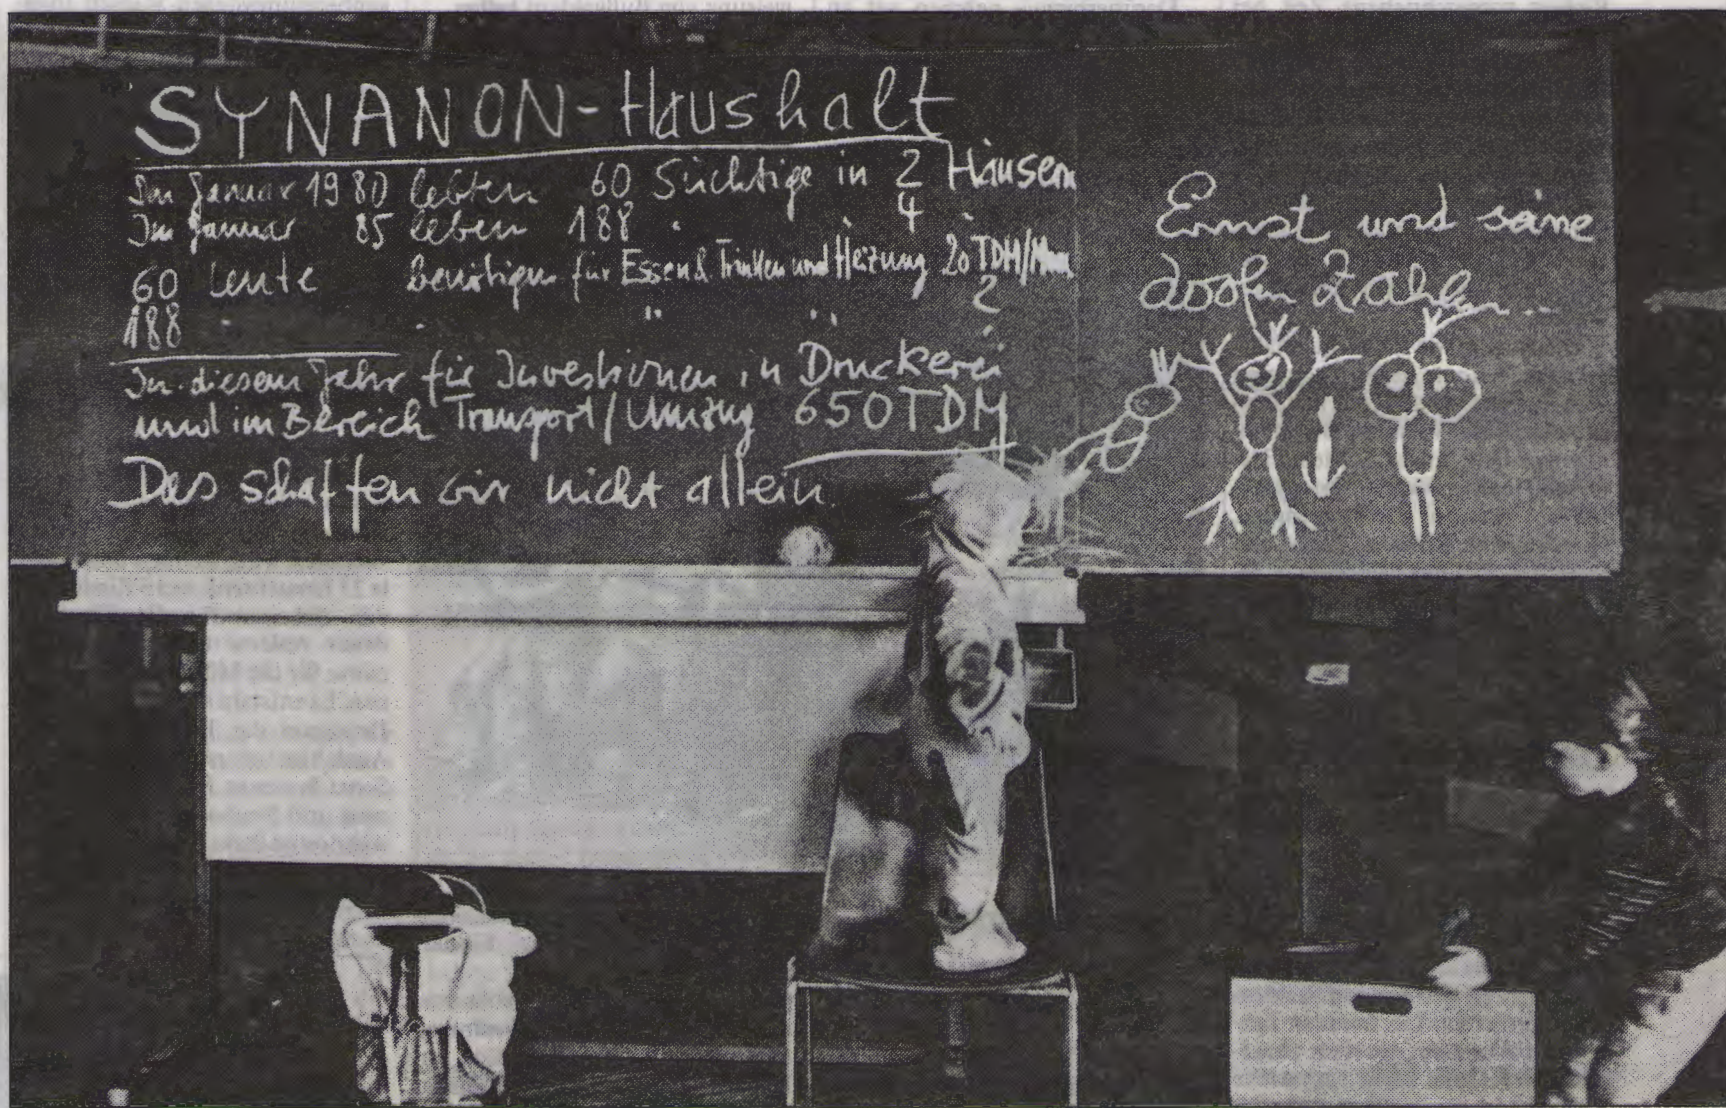 SYNANON-Haushalt
Im Januar 1980 lebten 60 Süchtige in 2 Häusern
Im Januar 85 leben 188 " 4 "
60 Leute benötigen für Essen & Trinken und Heizung 20 TDM/Mon
188 " " " " ?
In diesem Jahr für Investionen in Druckerei
und im Bereich Transport/Umzug 650 TDM
Das schaffen wir nicht allein
Ernst und seine
doofen Zahlen...